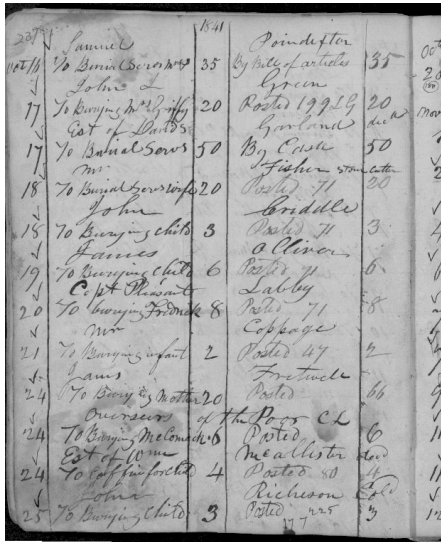 1841
Samuel Poindexter
Oct 16 To Burial Servs 35 By Bill of articles 35
John L Green
17 To Burying Mrs Griffy 20 Posted 199 LG 20
Est of Davids Garland
17 To Burial Servs 50 By Cash 50
Mr. Fisher Stone Cutter
18 To Burial Servs wife 20 Posted 71 20
John Criddle
18 To Burying child 3 Posted 71 3
James Olliver
19 To Burying Child 6 Posted 71 6
Capt Pleasants Labby
20 To burying Fredrick 8 Posted 71 8
Mr Coppage
21 To Burying infant 2 Posted 47 2
Fretwell
24 To Burying Mother 20 Posted
Overseers of the Poor CL
24 To Burying McComack 6 Posted 6
Est of Wm McAllister
24 To Coffin for Child 4 Posted 80 4
John Richeson Cold
25 To Burying Child 3 Posted 225 3
177